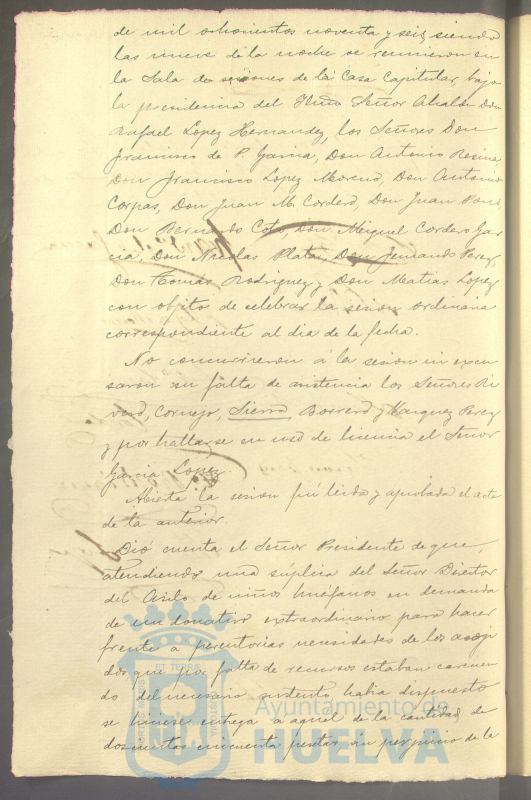 de mil ochocientos noventa y seis, siendo
las nueve de la noche se reunieron en
la Sala de sesiones de la Casa Capitular, bajo
la presidencia del Iltmo Señor Alcalde Don
Rafael Lopez Hernandez, los Señores Don
Francisco de P. Garcia, Don Antonio
Don Francisco Lopez Moreno, Don Antonio
Corpas, Don Juan M. Cordero, Don Juan
Don Bernardo Coto, Don Miguel Cordero Gar
cia, Don Nicolas Plata, Don Fernando Perez,
Don Tomás Rodriguez y Don Matias Lopez
con objeto de celebrar la sesion ordinaria
correspondiente al dia de la fecha.
No concurrieron á la sesion ni escu
saron su falta de asistencia los Señores Ri
vero, Cornejo, Sierra, Borrero y Vazquez Perez
y por hallarse en uso de licencia el Señor
Garcia Lopez.
Abierta la sesion fué leida y aprobada el acta
de la anterior.
Dió cuenta el Señor Presidente de que,
atendiendo una súplica del Señor Director
del Asilo de niños huérfanos en demanda
de un donativo extraordinario para hacer
frente a perentorias necesidades de los acoji
dos, que por falta de recursos estaban carecien
do del necesario sustento, habia dispuesto
se hiciese entrega a aquel de la cantidad de
doscientas cincuenta pesetas, sin perjuicio de le
ET TERRÆ
Ayuntamiento de
HUELVA